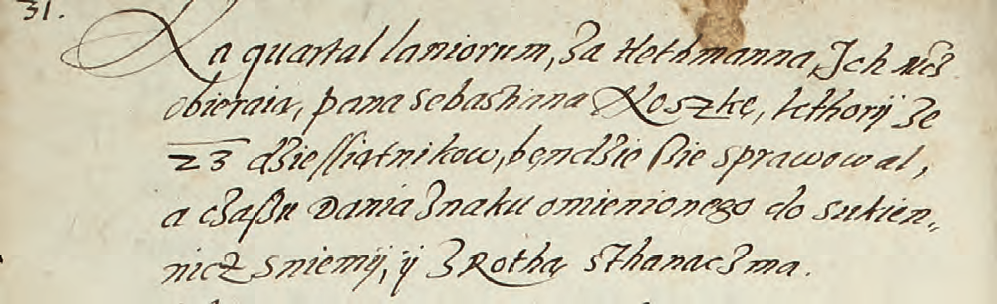 31.
Na quartal laniorum, za Hethmanna, Ich Mcz
obieraia, pana Sebasthiana Noszkę, kthorÿ ze
23 dzießiątnikow, będzie ßie sprawowal,
a czaßu Dania znaku omienionego do sukien„
nicz sniemÿ, ÿ z Rothą sthanacz ma.